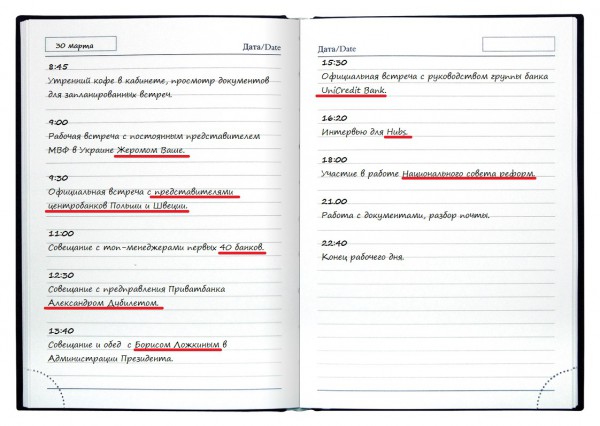 30 марта
Дата/Date
8:45
Утренний кофе в кабинете, просмотр документов
для запланированных встреч.
9:00
Рабочая встреча с постоянным представителем
МВФ в Украине Жеромом Ваше.
9:30
Официальная встреча с представителями
центробанков Польши и Швеции.
11:00
Совещание с топ-менеджерами первых 40 банков.
12:30
Совещание с предправления Приватбанка
Александром Дубилетом.
13:40
Совещание и обед с Борисом Ложкиным в
Администрации Президента.
Дата/Date
15:30
Официальная встреча с руководством группы банка
UniCredit Bank.
16:20
Интервью для Hubs.
18:00
Участие в работе Национального совета реформ.
21.00
Работа с документами, разбор почты.
22:40
Конец рабочего дня.